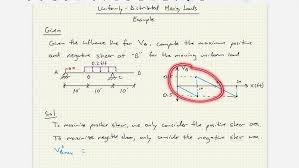 Uniformly - Distributed Moving Loads
Example
Given
Given the influence line for VB, compute the maximum positive
and negative shear at "B" for the moving uniform load
0.2 k/ft
VB
0.5
A
B
C
D
x (ft)
10'
10'
10'
Sol
To maximize positive shear, we only consider the positive shear area.
To maximize negative shear, only consider the negative shear area.
VBmax =